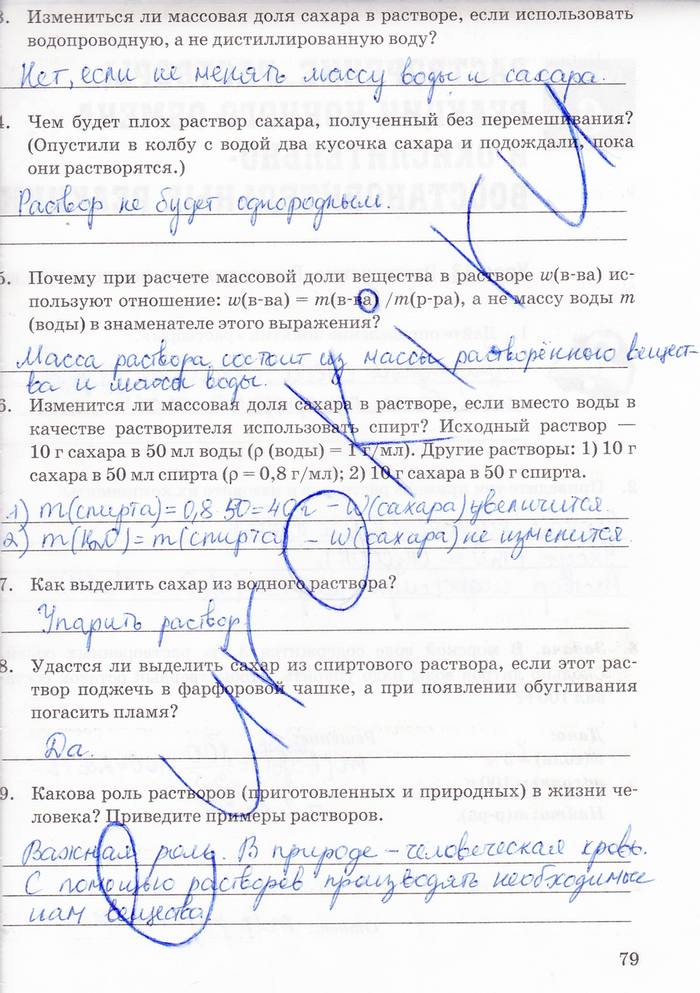 3. Измениться ли массовая доля сахара в растворе, если использовать
водопроводную, а не дистиллированную воду?
Нет, если не менять массу воды и сахара.
4. Чем будет плох раствор сахара, полученный без перемешивания?
(Опустили в колбу с водой два кусочка сахара и подождали, пока
они растворятся.)
Раствор не будет однородным.
5. Почему при расчете массовой доли вещества в растворе w(в-ва) ис-
пользуют отношение: w(в-ва) = m(в-ва) /m(р-ра), а не массу воды m
(воды) в знаменателе этого выражения?
Масса раствора состоит из массы растворённого вещест-
ва и массы воды.
6. Изменится ли массовая доля сахара в растворе, если вместо воды в
качестве растворителя использовать спирт? Исходный раствор —
10 г сахара в 50 мл воды (ρ (воды) = 1 г/мл). Другие растворы: 1) 10 г
сахара в 50 мл спирта (ρ = 0,8 г/мл); 2) 10 г сахара в 50 г спирта.
1) m(спирта) = 0,8 · 50 = 40 г – w(сахара) увеличится
2) m(H2O) = m(спирта) – w(сахара) не изменится.
7. Как выделить сахар из водного раствора?
Упарить раствор
8. Удастся ли выделить сахар из спиртового раствора, если этот рас-
твор поджечь в фарфоровой чашке, а при появлении обугливания
погасить пламя?
Да.
9. Какова роль растворов (приготовленных и природных) в жизни че-
ловека? Приведите примеры растворов.
Важная роль. В природе – человеческая кровь.
С помощью растворов производять необходимые
нам вещества.
79